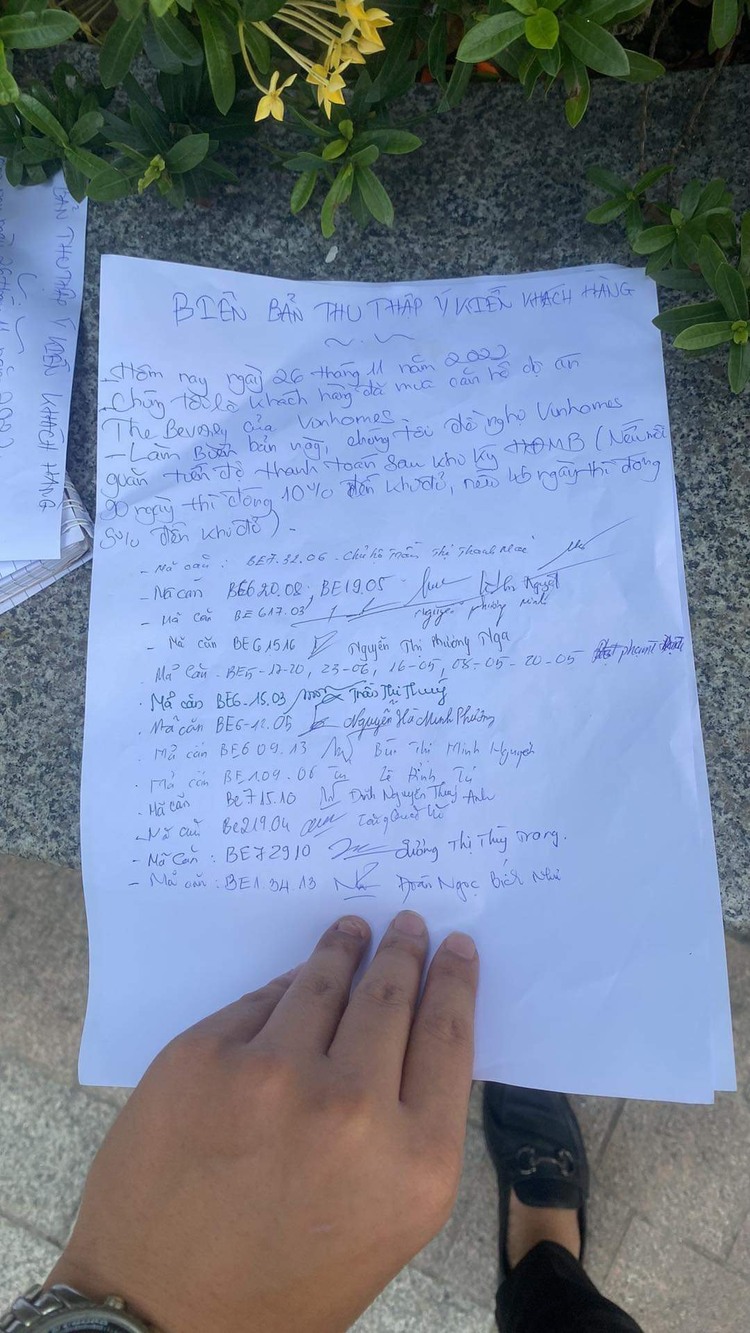 BIÊN BẢN THU THẬP Ý KIẾN KHÁCH HÀNG
- Hôm nay ngày 26 tháng 11 năm 2022
- Chúng tôi là khách hàng đã mua căn hộ dự án
The Beverly của Vinhomes.
- Làm biên bản này, chúng tôi đề nghị Vinhomes
giãn tiến độ thanh toán sau khi ký HĐMB (Nếu
90 ngày thì đóng 10% đến khi đủ, nếu 45 ngày thì đóng
5% đến khi đủ).
- Mã căn : BE7.32.06 - Chủ hộ Trần Thị Thanh
- Mã căn BE6 20.08; BE19.05 Nguyệt
- Mã căn BE 617.03 Nguyễn Phương Minh
- Mã căn BE61516 Nguyễn Thị Phương Nga
Mã Căn - BE5-17-20, 23-06, 16-05, 08-05-20-05 phạm
- Mã căn BE6-15.03 Trần Thị Thuý
- Mã căn BE6-12.05 Nguyễn Hà Minh Phương
- Mã căn BE6 09.13 Bùi Thị Minh Nguyệt
- Mã căn BE109.06 Lê Đình Tú
- Mã căn Be715.10 Đinh Nguyễn Thuỳ Anh
- Mã căn Be219.04
- Mã Căn : BE72910 Dương Thị Thùy Trang.
- Mã căn : BE1.3413 Đoàn Ngọc Bích Như
BẢN THU THẬP Ý KIẾN KHÁCH HÀNG